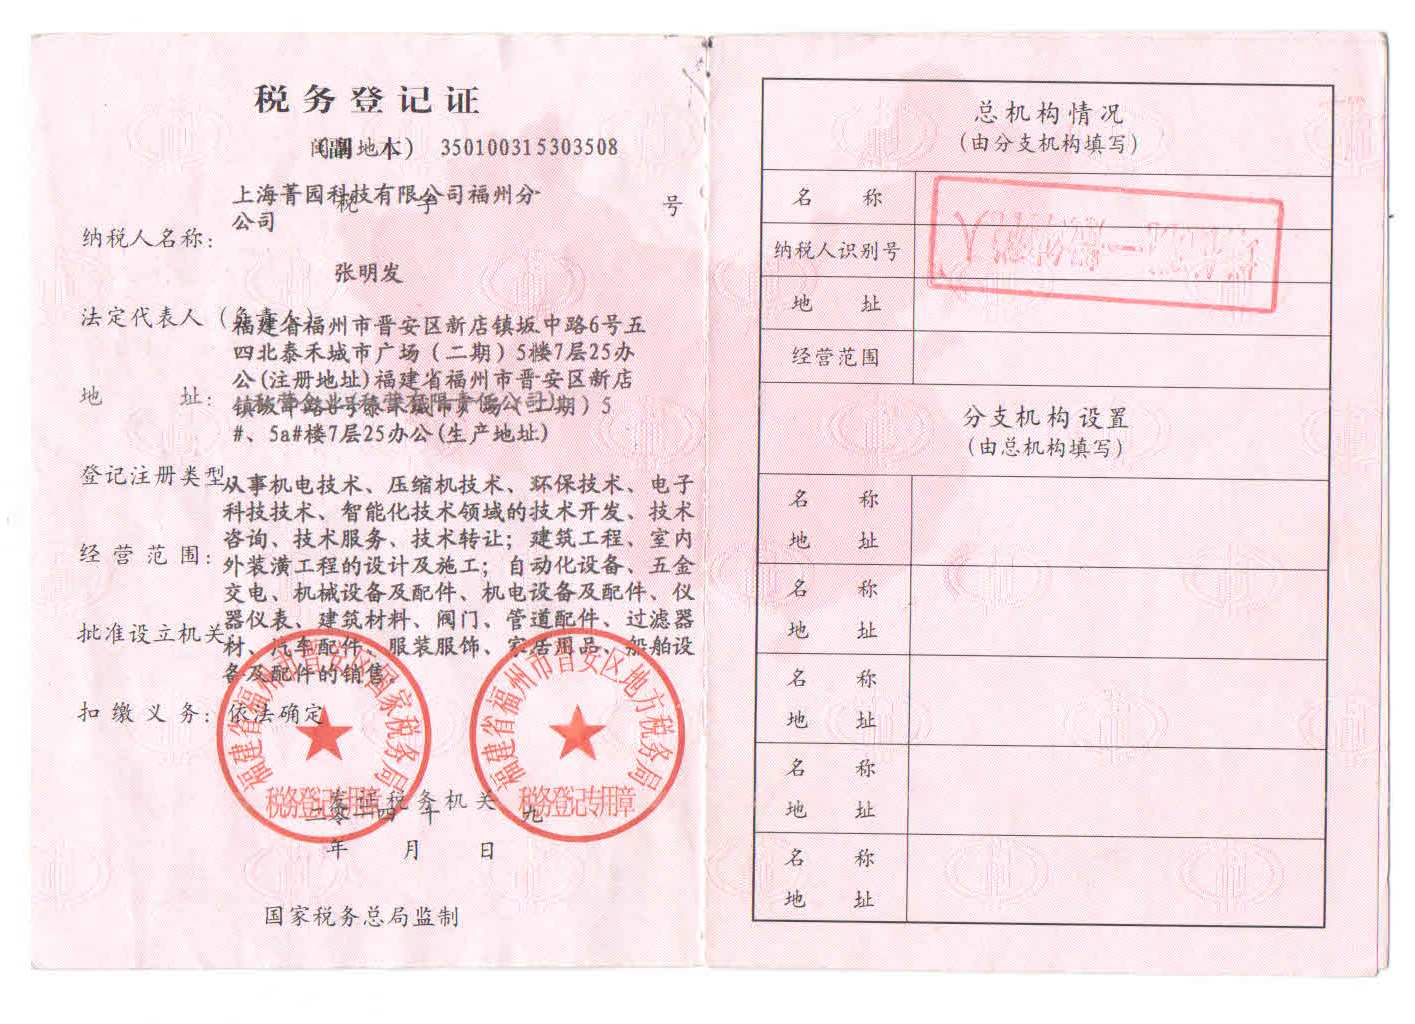 税务登记证
(副 本) 350100315303508
税 字 号
上海菁园科技有限公司福州分
公司
纳税人名称：
张明发
法定代表人（负责人
福建省福州市晋安区新店镇坂中路6号五
四北泰禾城市广场（二期）5楼7层25办
公(注册地址)福建省福州市晋安区新店
地 址：
镇坂中路6号泰禾城市广场（二期）5
私营企业(私营有限责任公司)
#、5a#楼7层25办公(生产地址)
登记注册类型
从事机电技术、压缩机技术、环保技术、电子
科技技术、智能化技术领域的技术开发、技术
咨询、技术服务、技术转让；建筑工程、室内
经营范围：
外装潢工程的设计及施工；自动化设备、五金
交电、机械设备及配件、机电设备及配件、仪
器仪表、建筑材料、阀门、管道配件、过滤器
批准设立机关
材、汽车配件、服装服饰、家居用品、船舶设
备及配件的销售。
扣缴义务：依法确定
福建省福州市晋安区国家税务局
税务登记专用章
福建省福州市晋安区地方税务局
税务登记专用章
发证税务机关
二零一四 年 九
年 月 日
国家税务总局监制
总机构情况
(由分支机构填写)
名 称
纳税人识别号
地 址
经营范围
分支机构设置
(由总机构填写)
名 称
地 址
名 称
地 址
名 称
地 址
名 称
地 址
名 称
地 址